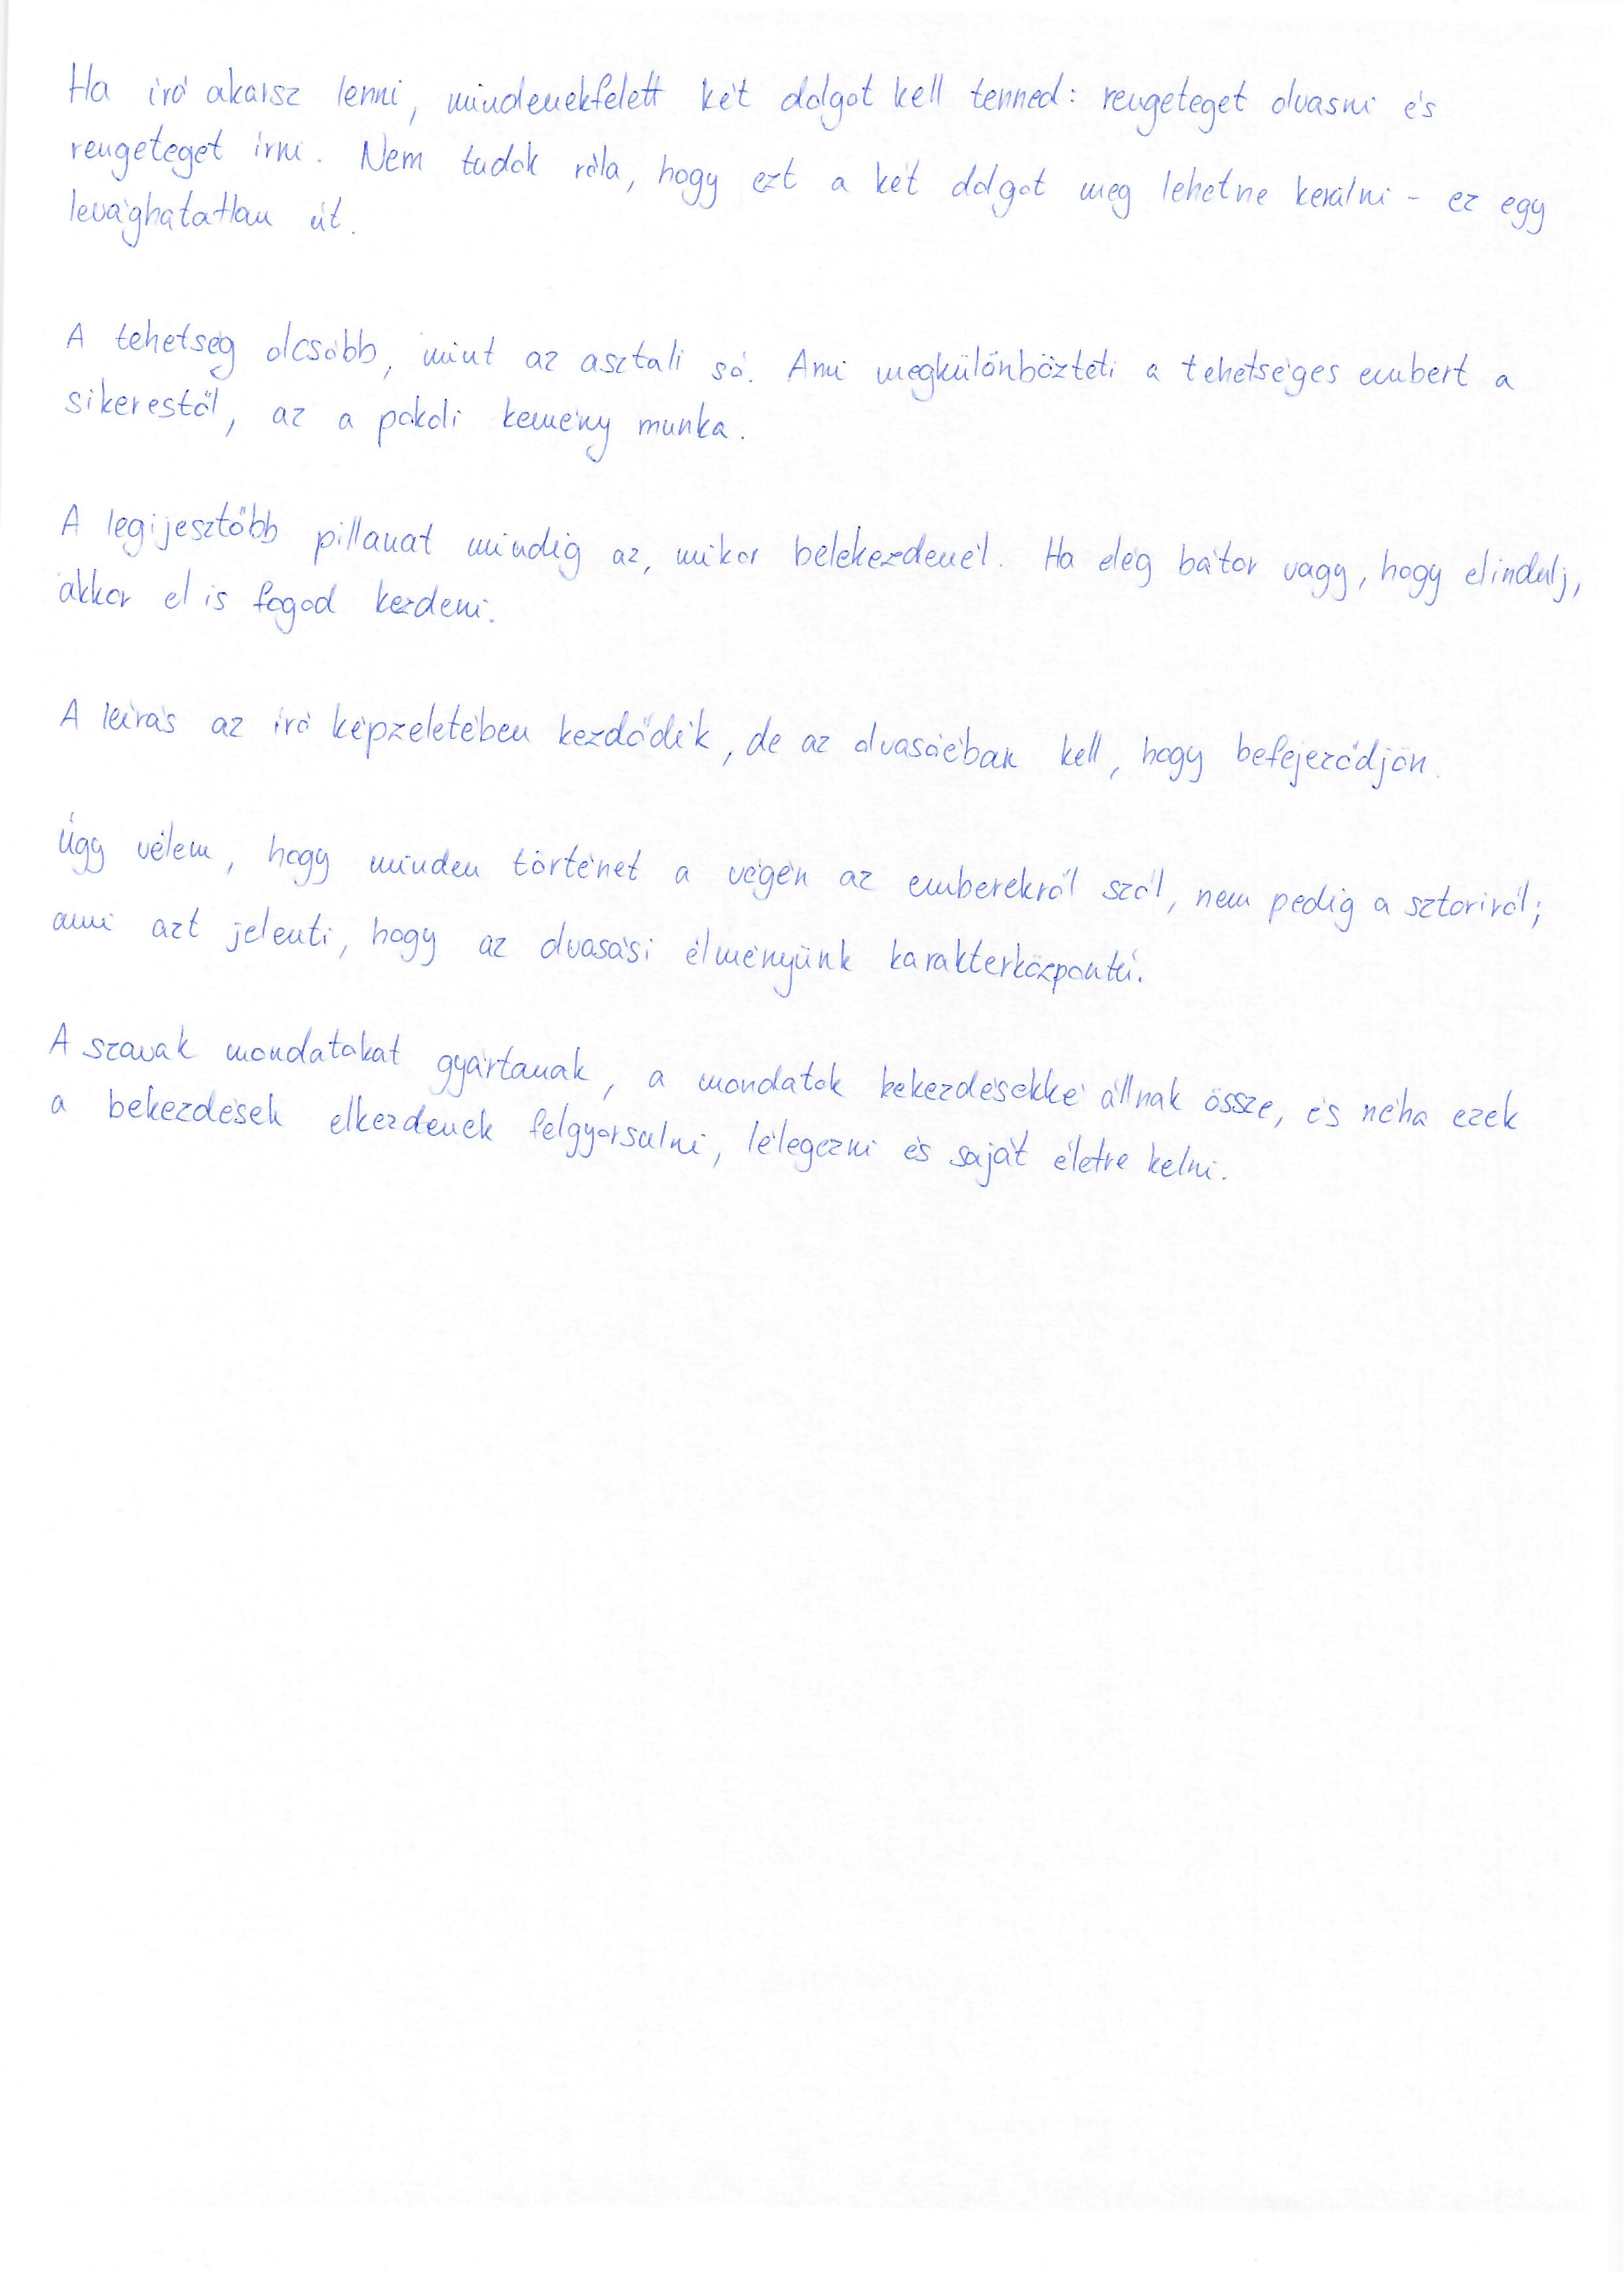 Ha író akarsz lenni, mindenekfelett két dolgot kell tenned: rengeteget olvasni és
rengeteget írni. Nem tudok róla, hogy ezt a két dolgot meg lehetne kerülni - ez egy
levághatatlan út.
A tehetség olcsóbb, mint az asztali só. Ami megkülönbözteti a tehetséges embert a
sikerestől, az a pokoli kemény munka.
A legijesztőbb pillanat mindig az, mikor belekezdenél. Ha elég bátor vagy, hogy elindulj,
akkor el is fogod kezdeni.
A leírás az író képzeletében kezdődik, de az olvasóéban kell, hogy befejeződjön.
Úgy vélem, hogy minden történet a végén az emberekről szól, nem pedig a sztoriról;
ami azt jelenti, hogy az olvasási élményünk karakterközpontú.
A szavak mondatokat gyártanak, a mondatok bekezdésekké állnak össze, és néha ezek
a bekezdések elkezdenek felgyorsulni, lélegezni és saját életre kelni.